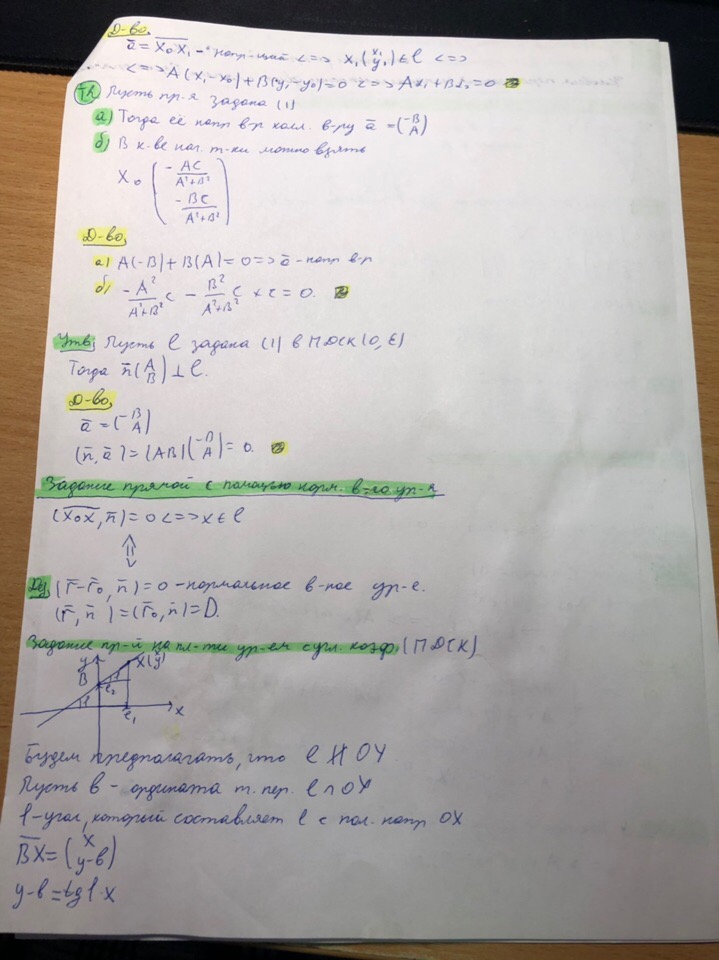 Д-во,
ā = X₀X₁ - напр-щий <=> X₁(x₁ y₁) ∈ l <=>
<=> A(x₁-x₀)+B(y₁-y₀)=0 <=> Aα₁+Bα₂=0
Th Пусть пр-я задана (1)
а) Тогда её напр в-р колл. в-ру ā = (-B A)
б) В к-ве нач. т-ки можно взять
X₀ (-AC/(A²+B²) -BC/(A²+B²))
Д-во,
а) A(-B)+B(A)=0 => ā - напр в-р
б) -A²/(A²+B²) C - B²/(A²+B²) C + C = 0.
Утв, Пусть l задана (1) в ПДСК(O, E)
Тогда n̄(A B) ⊥ l.
Д-во,
ā = (-B A)
(n̄, ā) = (AB)(-B A) = 0.
Задание прямой с помощью норм. в-го ур-я
(X₀X, n̄) = 0 <=> x ∈ l
⇕
Def (r̄-r̄₀, n̄) = 0 - нормальное в-ное ур-е.
(r̄, n̄) = (r̄₀, n̄) = D.
Задание пр-й на пл-ти ур-ем с угл. коэф. (ПДСК)
y
X(x y)
B
e₂
e₁
x
Будем предполагать, что l ∦ OY
Пусть b - ордината т. пер. l ∩ OY
φ-угол, который составляет l с пол. напр OX
BX = (x y-b)
y-b = tg φ · x